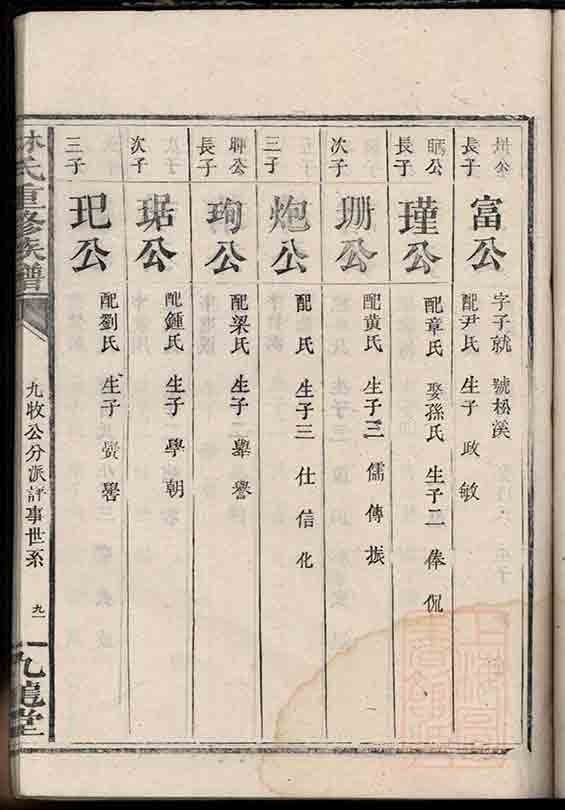 公
長子
富公
字子就 號松溪
配尹氏 生子 政 敏
公
長子
瑾公
配章氏 娶孫氏 生子二 俸 侃
次子
珊公
配黄氏 生子三 儒 傳 振
三子
炮公
配 氏 生子三 仕 信 化
聯公
長子
珣公
配梁氏 生子二 舉 譽
次子
琚公
配鍾氏 生子 學 朝
三子
玘公
配劉氏 生子 黌 礐
林氏重修族譜
九牧公分派評事世系
九一
九龍堂